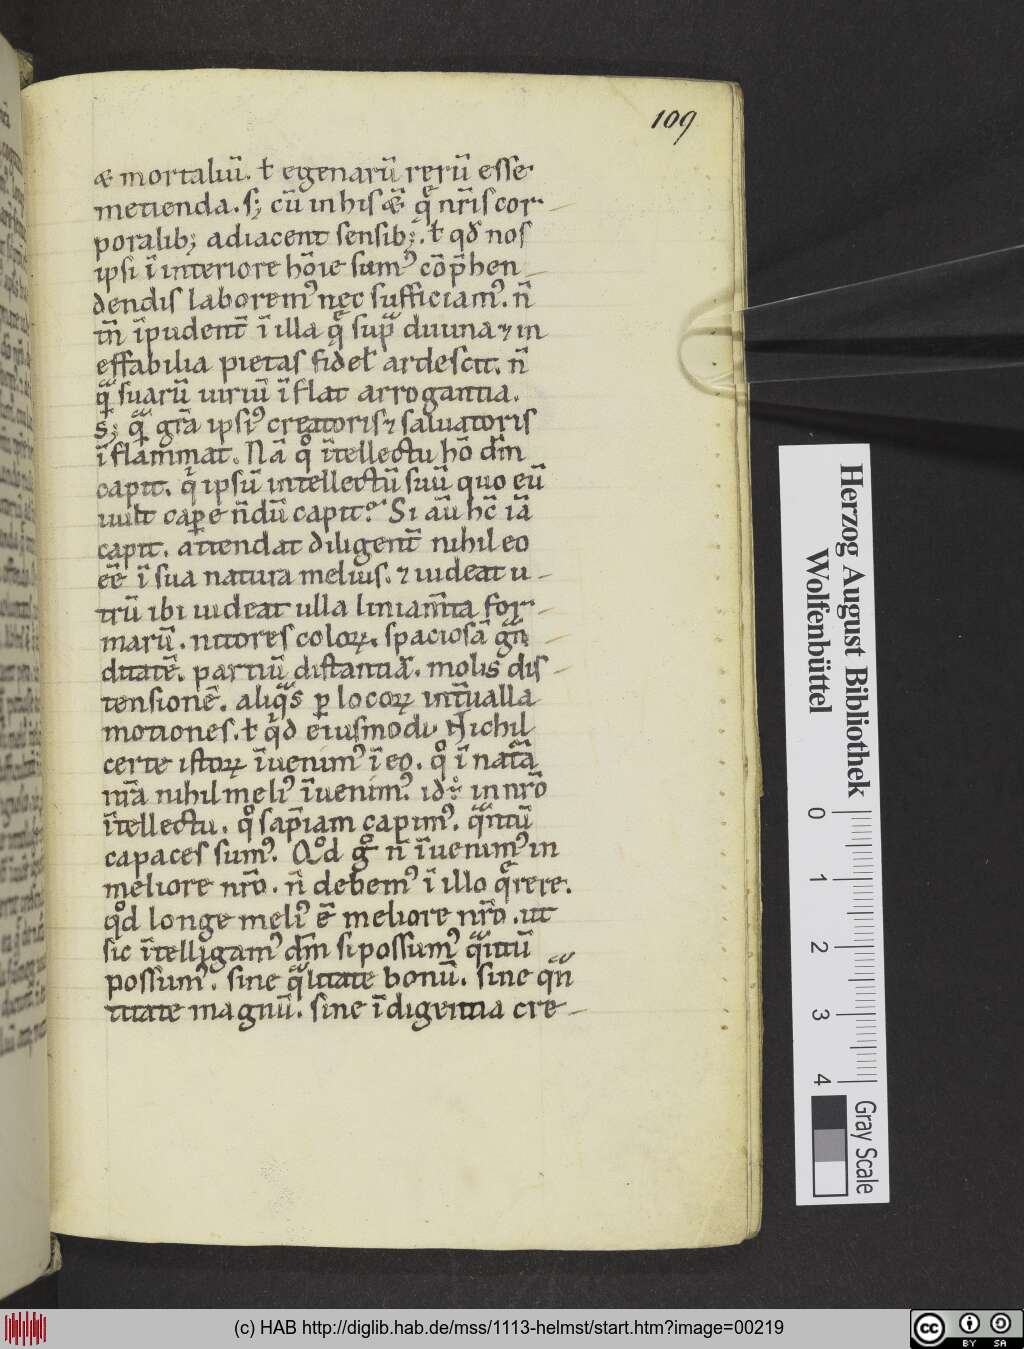 109
æ mortaliū. ł egenarū rerū esse
metienda. s; cū in his ǣ q̄ nr̄is cor-
poralib; adiacent sensib;. ł qđ nos
ipsi ī interiore hōie sumꝰ cōp̄hen-
dendis laboremꝰ nec sufficiamꝰ. n̄
tn̄ īpudent̄ ī illa q̄ sup̄ diuina ⁊ in
effabilia pietas fidel̄ ardescit. n̄
q̄ suarū uiriū īflat arrogantia.
S; q̄ gr̄a ipsiꝰ creatoris ⁊ saluatoris
īflammat. Nā qͦ ītellectu hō dm̄
capit. qͥ ipsū intellectū suū quo eū
uult caꝑe n̄dū capit? Si aū hc̄ iā
capit. attendat diligent̄ nihil eo
eē ī sua natura melius. ⁊ uideat u-
trū ibi uideat ulla liniam̄ta for-
marū. nitores coloꝝ. spaciosā gn̄-
ditatē. partiū distantiā. molis dis-
tensionē. aliq̄s ꝑ locoꝝ int̄ualla
motiones. ł qͥd eiusmodi Nichil
certe istoꝝ īuenimꝰ ī eo. qͦ ī nat̄a
nr̄a nihil meliꝰ īuenimꝰ. idē in nr̄o
ītellectu. qͦ sap̄iam capimꝰ. q̄ntū
capaces sumꝰ. Qͦd gͦ n̄ īuenimꝰ in
meliore nr̄o. n̄ debemꝰ ī illo q̄rere.
qͦd longe meliꝰ ē meliore nr̄o. ut
sic ītelligamꝰ dm̄ si possumꝰ q̄ntū
possumꝰ. sine q̄litate bonū. sine qn̄
titate magnū. sine īdigentia cre-
Herzog August Bibliothek
Wolfenbüttel
0 1 2 3 4
Gray Scale
(c) HAB http://diglib.hab.de/mss/1113-helmst/start.htm?image=00219
cc BY SA